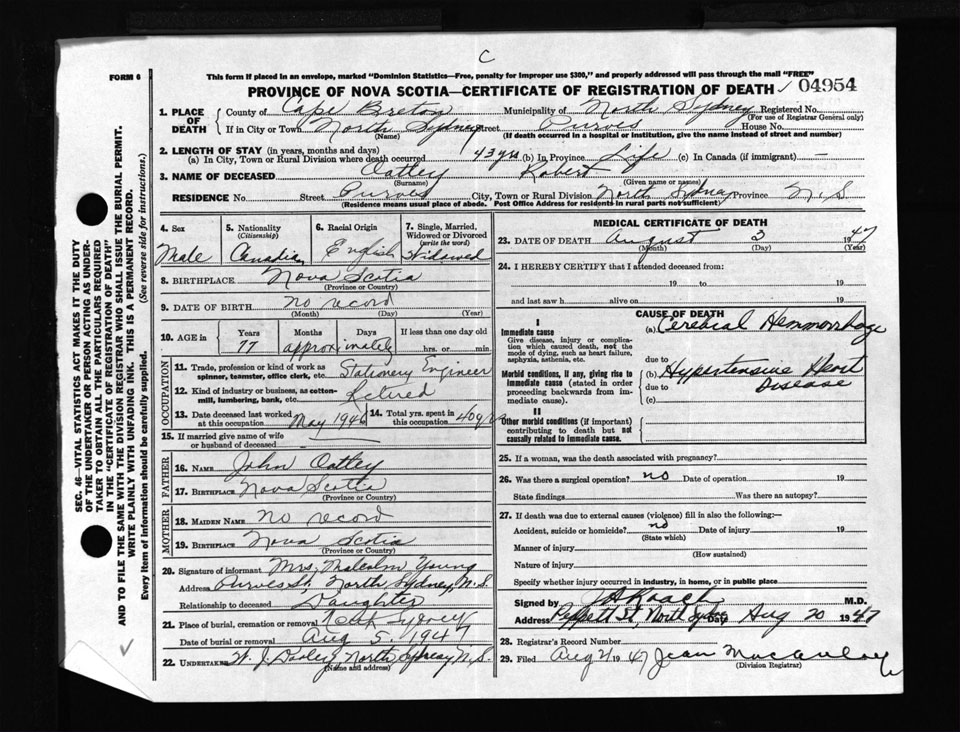 C
FORM 6
This form if placed in an envelope, marked "Dominion Statistics—Free, penalty for improper use $300," and properly addressed will pass through the mail "FREE"
PROVINCE OF NOVA SCOTIA—CERTIFICATE OF REGISTRATION OF DEATH ✓ 04954
SEC. 46—VITAL STATISTICS ACT MAKES IT THE DUTY
OF THE UNDERTAKER OR PERSON ACTING AS UNDER-
TAKER TO OBTAIN ALL THE PARTICULARS REQUIRED
IN THE "CERTIFICATE OF REGISTRATION OF DEATH"
AND TO FILE THE SAME WITH THE DIVISION REGISTRAR WHO SHALL ISSUE THE BURIAL PERMIT.
WRITE PLAINLY WITH UNFADING INK. THIS IS A PERMANENT RECORD.
Every item of information should be carefully supplied. (See reverse side for instructions.)
1. PLACE OF DEATH County of Cape Breton Municipality of North Sydney Registered No.
(For use of Registrar General only)
If in City or Town North Sydney Street Purves House No.
(Name) (If death occurred in a hospital or institution, give the name instead of street and number)
2. LENGTH OF STAY (in years, months and days)
(a) In City, Town or Rural Division where death occurred 43 yrs (b) In Province Life (c) In Canada (if immigrant) —
3. NAME OF DECEASED Oatley Robert
(Surname) (Given name or names)
RESIDENCE No. Street Purves City, Town or Rural Division North Sydney Province N.S
(Residence means usual place of abode. Post Office Address for residents in rural parts not sufficient)
4. Sex Male
5. Nationality (Citizenship) Canadian
6. Racial Origin English
7. Single, Married, Widowed or Divorced (write the word) Widowed
8. BIRTHPLACE Nova Scotia
(Province or Country)
9. DATE OF BIRTH no record
(Month) (Day) (Year)
10. AGE in Years Months Days If less than one day old
77 approximately hrs. or min.
OCCUPATION
11. Trade, profession or kind of work as spinner, teamster, office clerk, etc. Stationery Engineer
12. Kind of industry or business, as cotton-mill, lumbering, bank, etc. Retired
13. Date deceased last worked at this occupation May 1946 14. Total yrs. spent in this occupation 40 yrs
15. If married give name of wife or husband of deceased
FATHER
16. NAME John Oatley
17. BIRTHPLACE Nova Scotia
(Province or Country)
MOTHER
18. MAIDEN NAME no record
19. BIRTHPLACE Nova Scotia
(Province or Country)
20. Signature of informant Mrs. Malcolm Young
Address Purves St, North Sydney, N.S.
Relationship to deceased Daughter
21. Place of burial, cremation or removal North Sydney
Date of burial or removal Aug 5, 1947
22. UNDERTAKER W. J. Dooley North Sydney N.S.
(Name and address)
MEDICAL CERTIFICATE OF DEATH
23. DATE OF DEATH August 3 1947
(Month) (Day) (Year)
24. I HEREBY CERTIFY that I attended deceased from:
19 to 19
and last saw h alive on 19
CAUSE OF DEATH
I
Immediate cause (a) Cerebral Hemmorrhage
Give disease, injury or complication which caused death, not the mode of dying, such as heart failure, asphyxia, asthenia, etc.
due to
Morbid conditions, if any, giving rise to immediate cause (stated in order proceeding backwards from immediate cause). (b) Hypertensive Heart Disease
due to
(c)
II
Other morbid conditions (if important) contributing to death but not causally related to immediate cause.
25. If a woman, was the death associated with pregnancy?
26. Was there a surgical operation? no Date of operation 19
State findings Was there an autopsy?
27. If death was due to external causes (violence) fill in also the following:—
Accident, suicide or homicide? no Date of injury 19
(State which)
Manner of injury
(How sustained)
Nature of injury
Specify whether injury occurred in industry, in home, or in public place
Signed by Roach M.D.
Address Peppett St, North Sydney Date Aug 20 1947
28. Registrar's Record Number
29. Filed Aug 21 1947 Jean Macaulay
(Division Registrar)